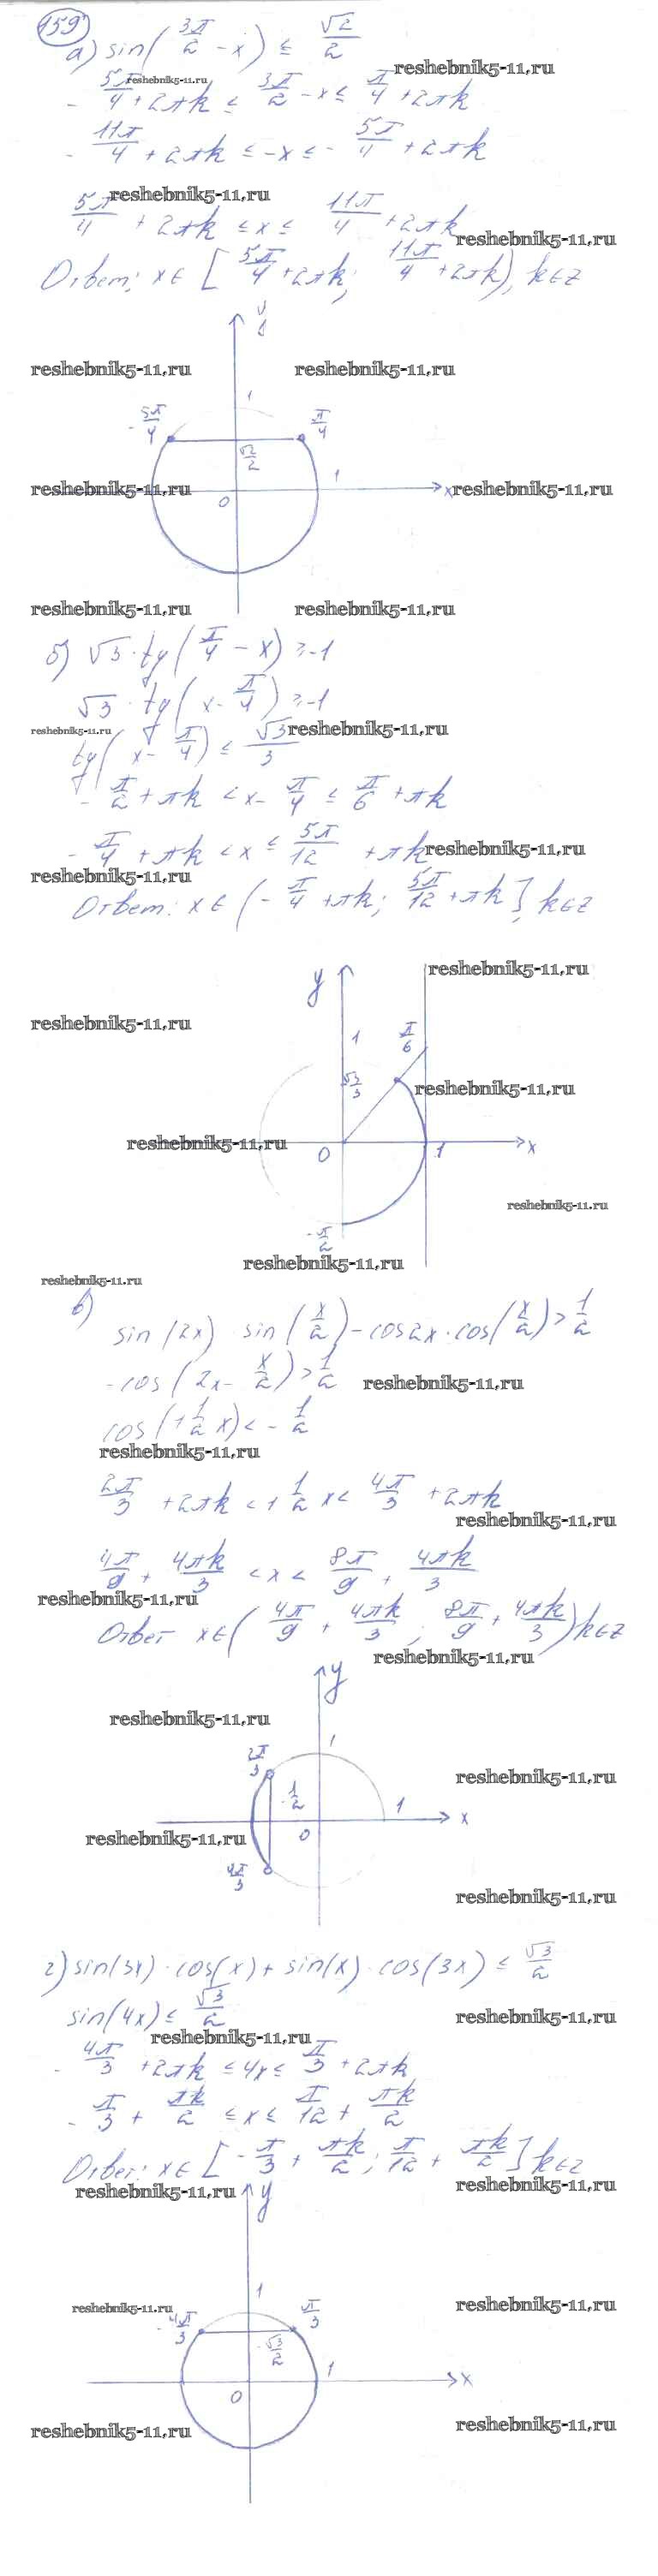 159
а) sin(3π/2 - x) ≤ √2/2
reshebnik5-11.ru
reshebnik5-11.ru
- 5π/4 + 2πk ≤ 3π/2 - x ≤ π/4 + 2πk
- 11π/4 + 2πk ≤ -x ≤ - 5π/4 + 2πk
reshebnik5-11.ru
5π/4 + 2πk ≤ x ≤ 11π/4 + 2πk
reshebnik5-11.ru
Ответ: x ∈ [5π/4 + 2πk; 11π/4 + 2πk), k∈z
reshebnik5-11.ru reshebnik5-11.ru
1
- 5π/4 π/4
√2/2
1
reshebnik5-11.ru 0 x reshebnik5-11.ru
reshebnik5-11.ru reshebnik5-11.ru
б) √3 · tg(π/4 - x) ≥ -1
√3 · tg(x - π/4) ≥ -1
reshebnik5-11.ru reshebnik5-11.ru
tg(x - π/4) ≤ √3/3
- π/2 + πk < x - π/4 ≤ π/6 + πk
- π/4 + πk < x ≤ 5π/12 + πk
reshebnik5-11.ru
reshebnik5-11.ru
Ответ: x ∈ (- π/4 + πk; 5π/12 + πk], k∈z
y reshebnik5-11.ru
reshebnik5-11.ru
1 π/6
√3/3 reshebnik5-11.ru
reshebnik5-11.ru 0 1 x
reshebnik5-11.ru
- π/2
reshebnik5-11.ru
reshebnik5-11.ru
в)
sin(2x) · sin(x/2) - cos2x · cos(x/2) > 1/2
- cos(2x - x/2) > 1/2
reshebnik5-11.ru
cos(1 1/2 x) < - 1/2
reshebnik5-11.ru
2π/3 + 2πk < 1 1/2 x < 4π/3 + 2πk
reshebnik5-11.ru
4π/9 + 4πk/3 < x < 8π/9 + 4πk/3
reshebnik5-11.ru
Ответ x ∈ (4π/9 + 4πk/3; 8π/9 + 4πk/3) k∈z
reshebnik5-11.ru
y
reshebnik5-11.ru
1
2π/3
reshebnik5-11.ru
- 1/2
1
0 x
reshebnik5-11.ru
4π/3
reshebnik5-11.ru
г) sin(3x) · cos(x) + sin(x) · cos(3x) ≤ √3/2
sin(4x) ≤ √3/2
reshebnik5-11.ru
reshebnik5-11.ru
- 4π/3 + 2πk ≤ 4x ≤ π/3 + 2πk
- π/3 + πk/2 ≤ x ≤ π/12 + πk/2
Ответ: x ∈ [- π/3 + πk/2; π/12 + πk/2] k∈z
reshebnik5-11.ru y reshebnik5-11.ru
1
reshebnik5-11.ru reshebnik5-11.ru
- 4π/3 π/3
√3/2
1
0 x
reshebnik5-11.ru reshebnik5-11.ru